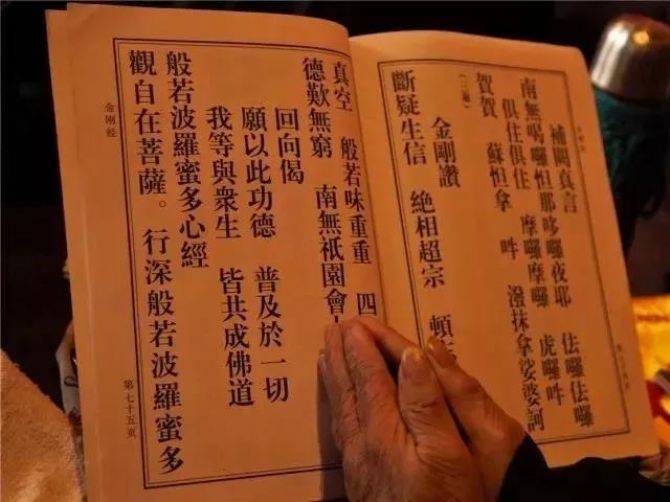 補闕真言
南無喝囉怛那哆囉夜耶 佉囉佉囉
俱住俱住 摩囉摩囉 虎囉吽
賀賀 蘇怛拏 吽 潑抹拏娑婆訶
(三遍)
金剛讚
斷疑生信 絶相超宗 頓
真空 般若味重重 四
德歎無窮 南無祇園會
回向偈
願以此功德 普及於一切
我等與衆生 皆共成佛道
般若波羅蜜多心經
觀自在菩薩。行深般若波羅蜜多
金刚经
第七十五頁